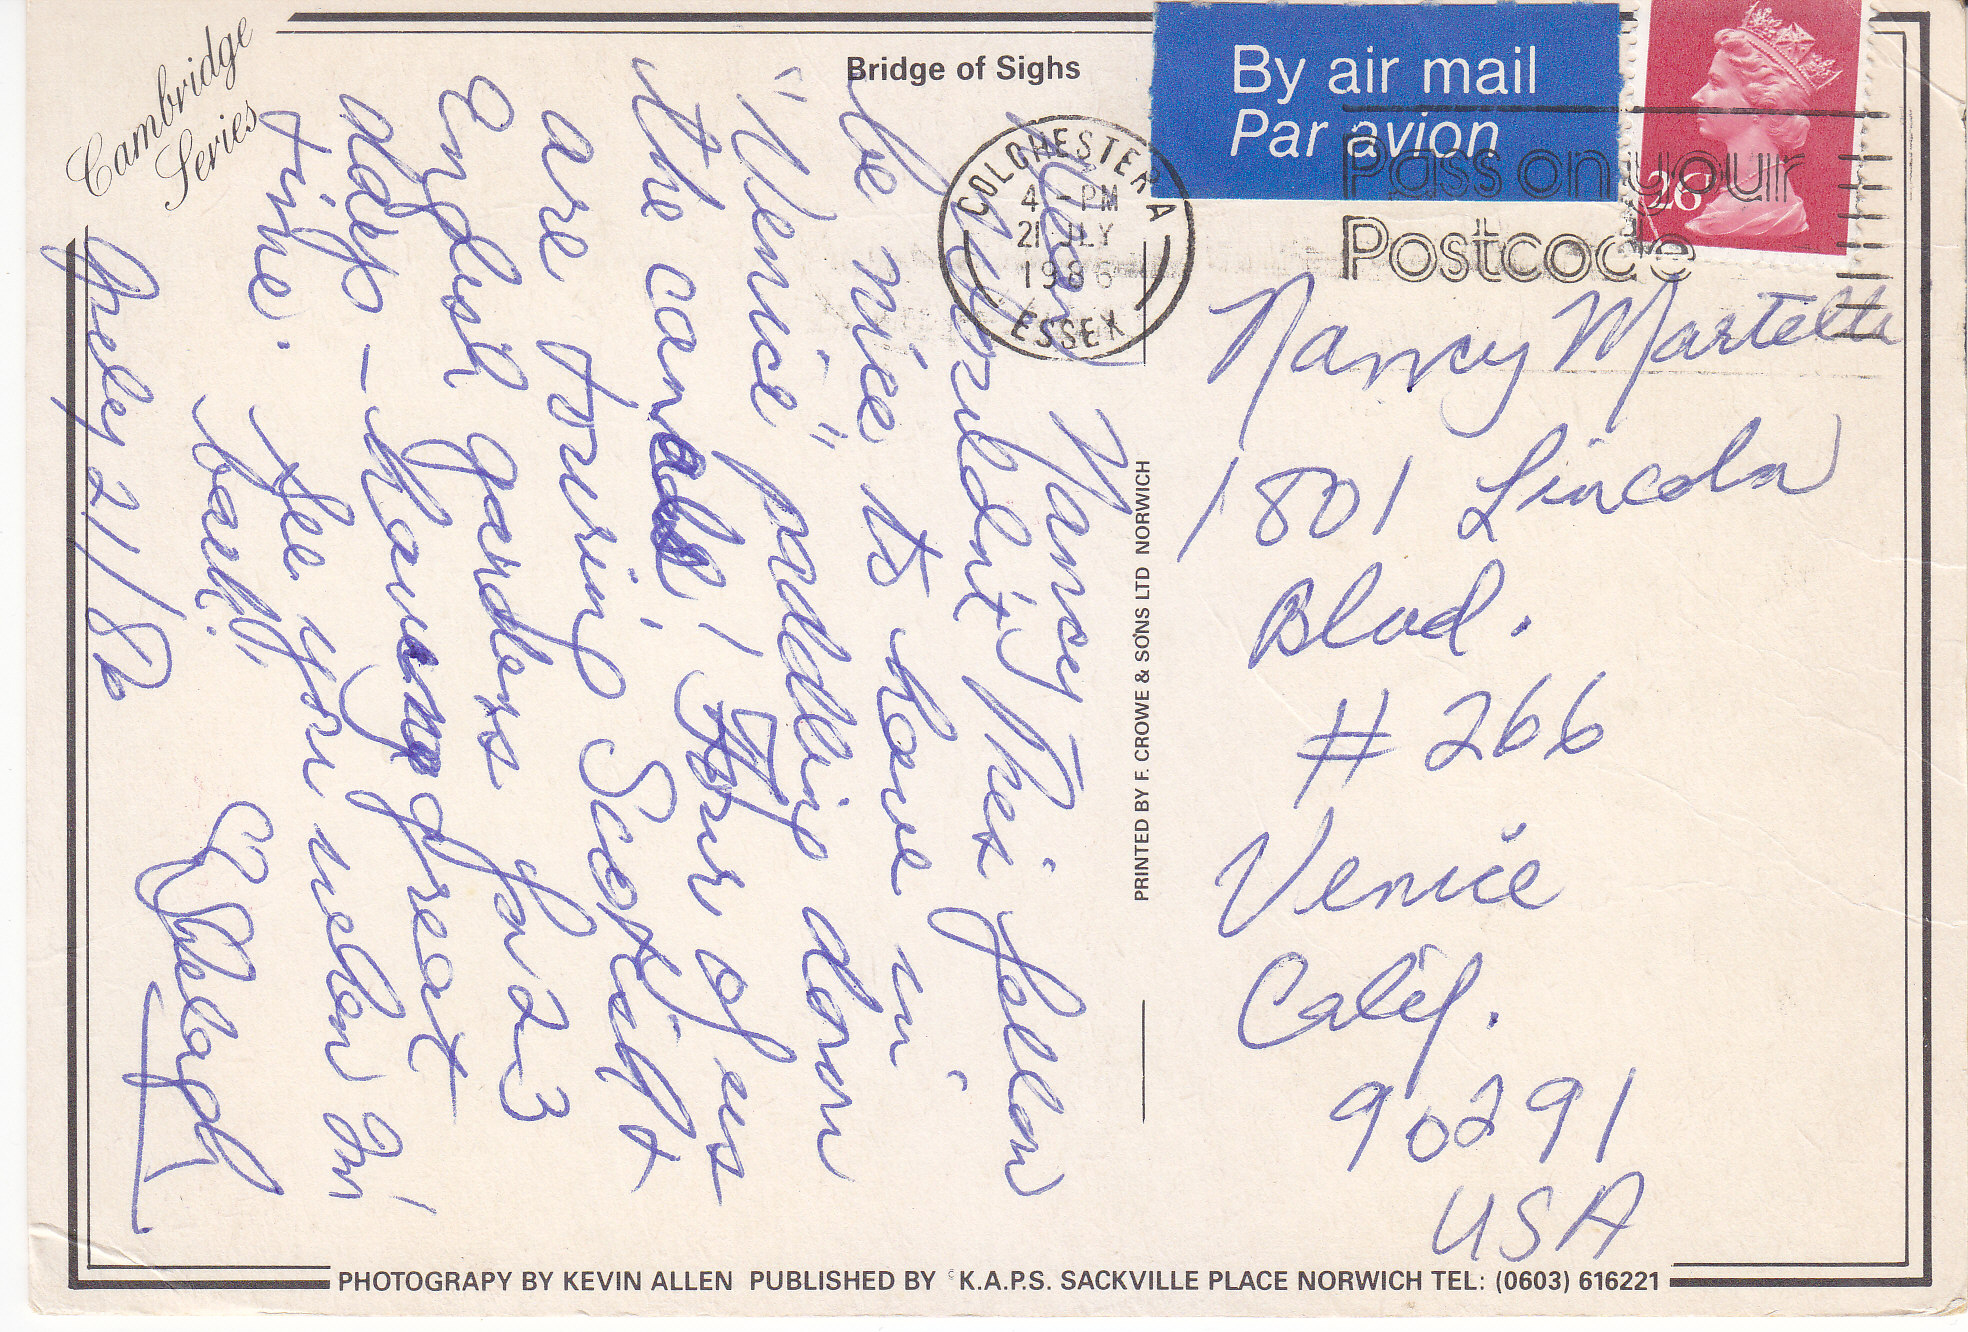 Cambridge
Series
Bridge of Sighs
By air mail
Par avion
26P
COLCHESTER A
4 - PM
21 JLY
1986
ESSEX
Pass on your
Postcode
July 21/86
Dear Nancy This fellow
would
be nice to have in
"Venice" paddling down
the canals! Four of us
are touring Scottish +
English gardens for 23
days - having great
time. See you when I'm
back.
PRINTED BY F. CROWE & SONS LTD NORWICH
Nancy Martelli
1801 Lincoln
Blvd.
# 266
Venice
Calif.
90291
USA
PHOTOGRAPY BY KEVIN ALLEN PUBLISHED BY K.A.P.S. SACKVILLE PLACE NORWICH TEL: (0603) 616221